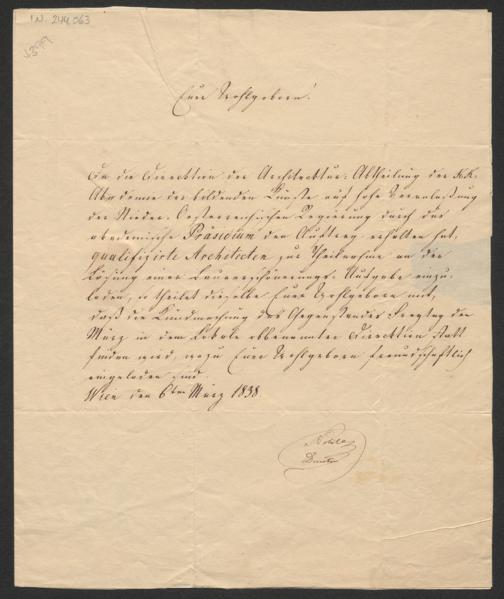 I.N. 244.063
Euer Wohlgeboren!
Da die Direcktion der Architecktur-Abtheilung der K. K.
Akademie der bildenden Künste auf hohe Veranlassung
der Nieder-Oesterreichischen Regierung durch das
akademische Präsidium den Auftrag erhalten hat,
qualifizirte Architeckten zur Theilnahme an der
Lösung einer Aufgabe einzu-
laden, so theilet dieselbe Euer Wohlgeboren mit,
daß die Kundmachung des Gegenstandes Freytag den
März in dem Lokale obbenannter Direcktion Statt
finden wird, wozu Euer Wohlgeboren freundschaftlich
eingeladen sind.
Wien den 6ten März 1838.
Nobile
Direktor